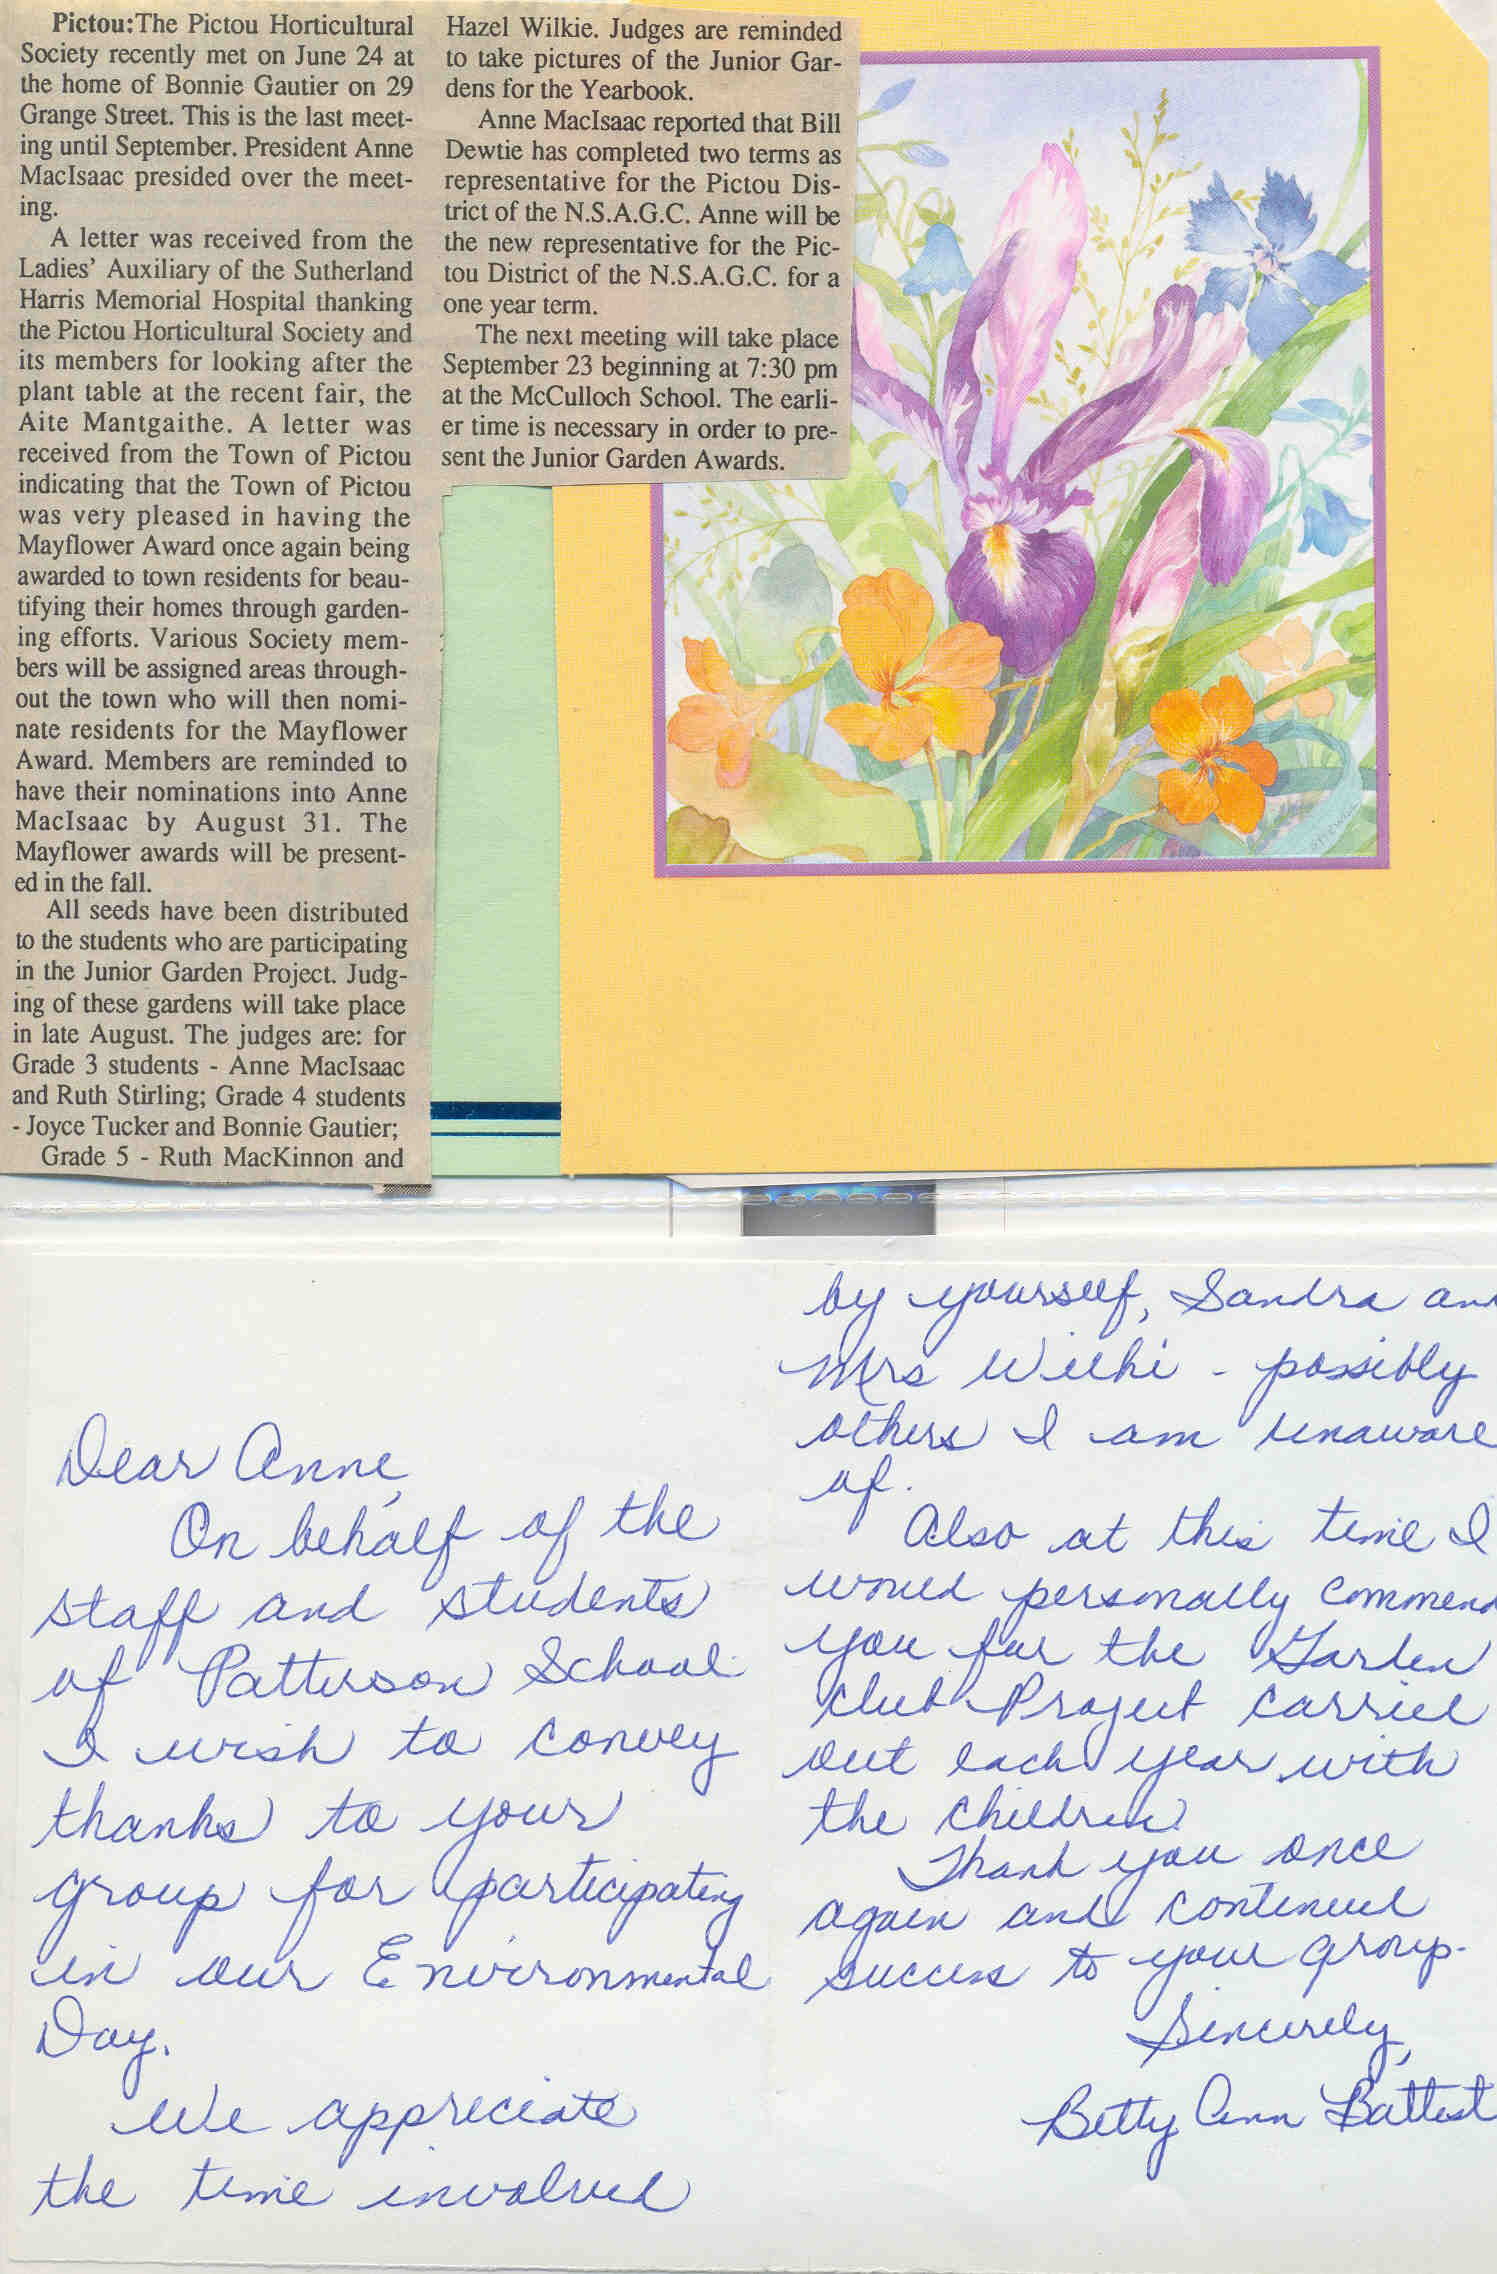 Pictou:The Pictou Horticultural
Society recently met on June 24 at
the home of Bonnie Gautier on 29
Grange Street. This is the last meet-
ing until September. President Anne
MacIsaac presided over the meet-
ing.
A letter was received from the
Ladies' Auxiliary of the Sutherland
Harris Memorial Hospital thanking
the Pictou Horticultural Society and
its members for looking after the
plant table at the recent fair, the
Aite Mantgaithe. A letter was
received from the Town of Pictou
indicating that the Town of Pictou
was very pleased in having the
Mayflower Award once again being
awarded to town residents for beau-
tifying their homes through garden-
ing efforts. Various Society mem-
bers will be assigned areas through-
out the town who will then nomi-
nate residents for the Mayflower
Award. Members are reminded to
have their nominations into Anne
MacIsaac by August 31. The
Mayflower awards will be present-
ed in the fall.
All seeds have been distributed
to the students who are participating
in the Junior Garden Project. Judg-
ing of these gardens will take place
in late August. The judges are: for
Grade 3 students - Anne MacIsaac
and Ruth Stirling; Grade 4 students
- Joyce Tucker and Bonnie Gautier;
Grade 5 - Ruth MacKinnon and
Hazel Wilkie. Judges are reminded
to take pictures of the Junior Gar-
dens for the Yearbook.
Anne MacIsaac reported that Bill
Dewtie has completed two terms as
representative for the Pictou Dis-
trict of the N.S.A.G.C. Anne will be
the new representative for the Pic-
tou District of the N.S.A.G.C. for a
one year term.
The next meeting will take place
September 23 beginning at 7:30 pm
at the McCulloch School. The earli-
er time is necessary in order to pre-
sent the Junior Garden Awards.
Dear Anne,
On behalf of the
staff and students
of Patterson School
I wish to convey
thanks to your
group for participating
in our Environmental
Day.
We appreciate
the time involved
by yourself, Sandra and
Mrs Wilki - possibly
others I am unaware
of.
Also at this time I
would personally commend
you for the Garden
Club Project carried
out each year with
the children.
Thank you once
again and continued
success to your group.
Sincerely,
Betty Ann Battist